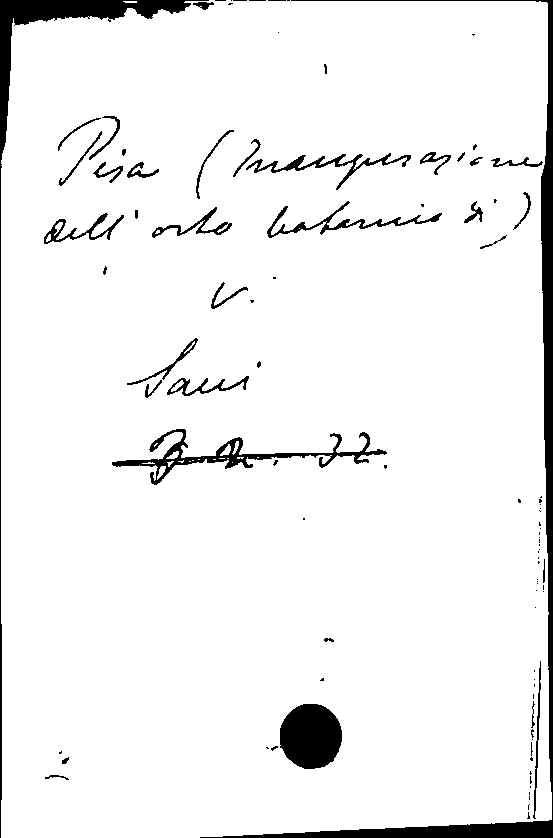 Pisa (Inaugurazione
dell' orto botanico di)
V.
Savi
32.